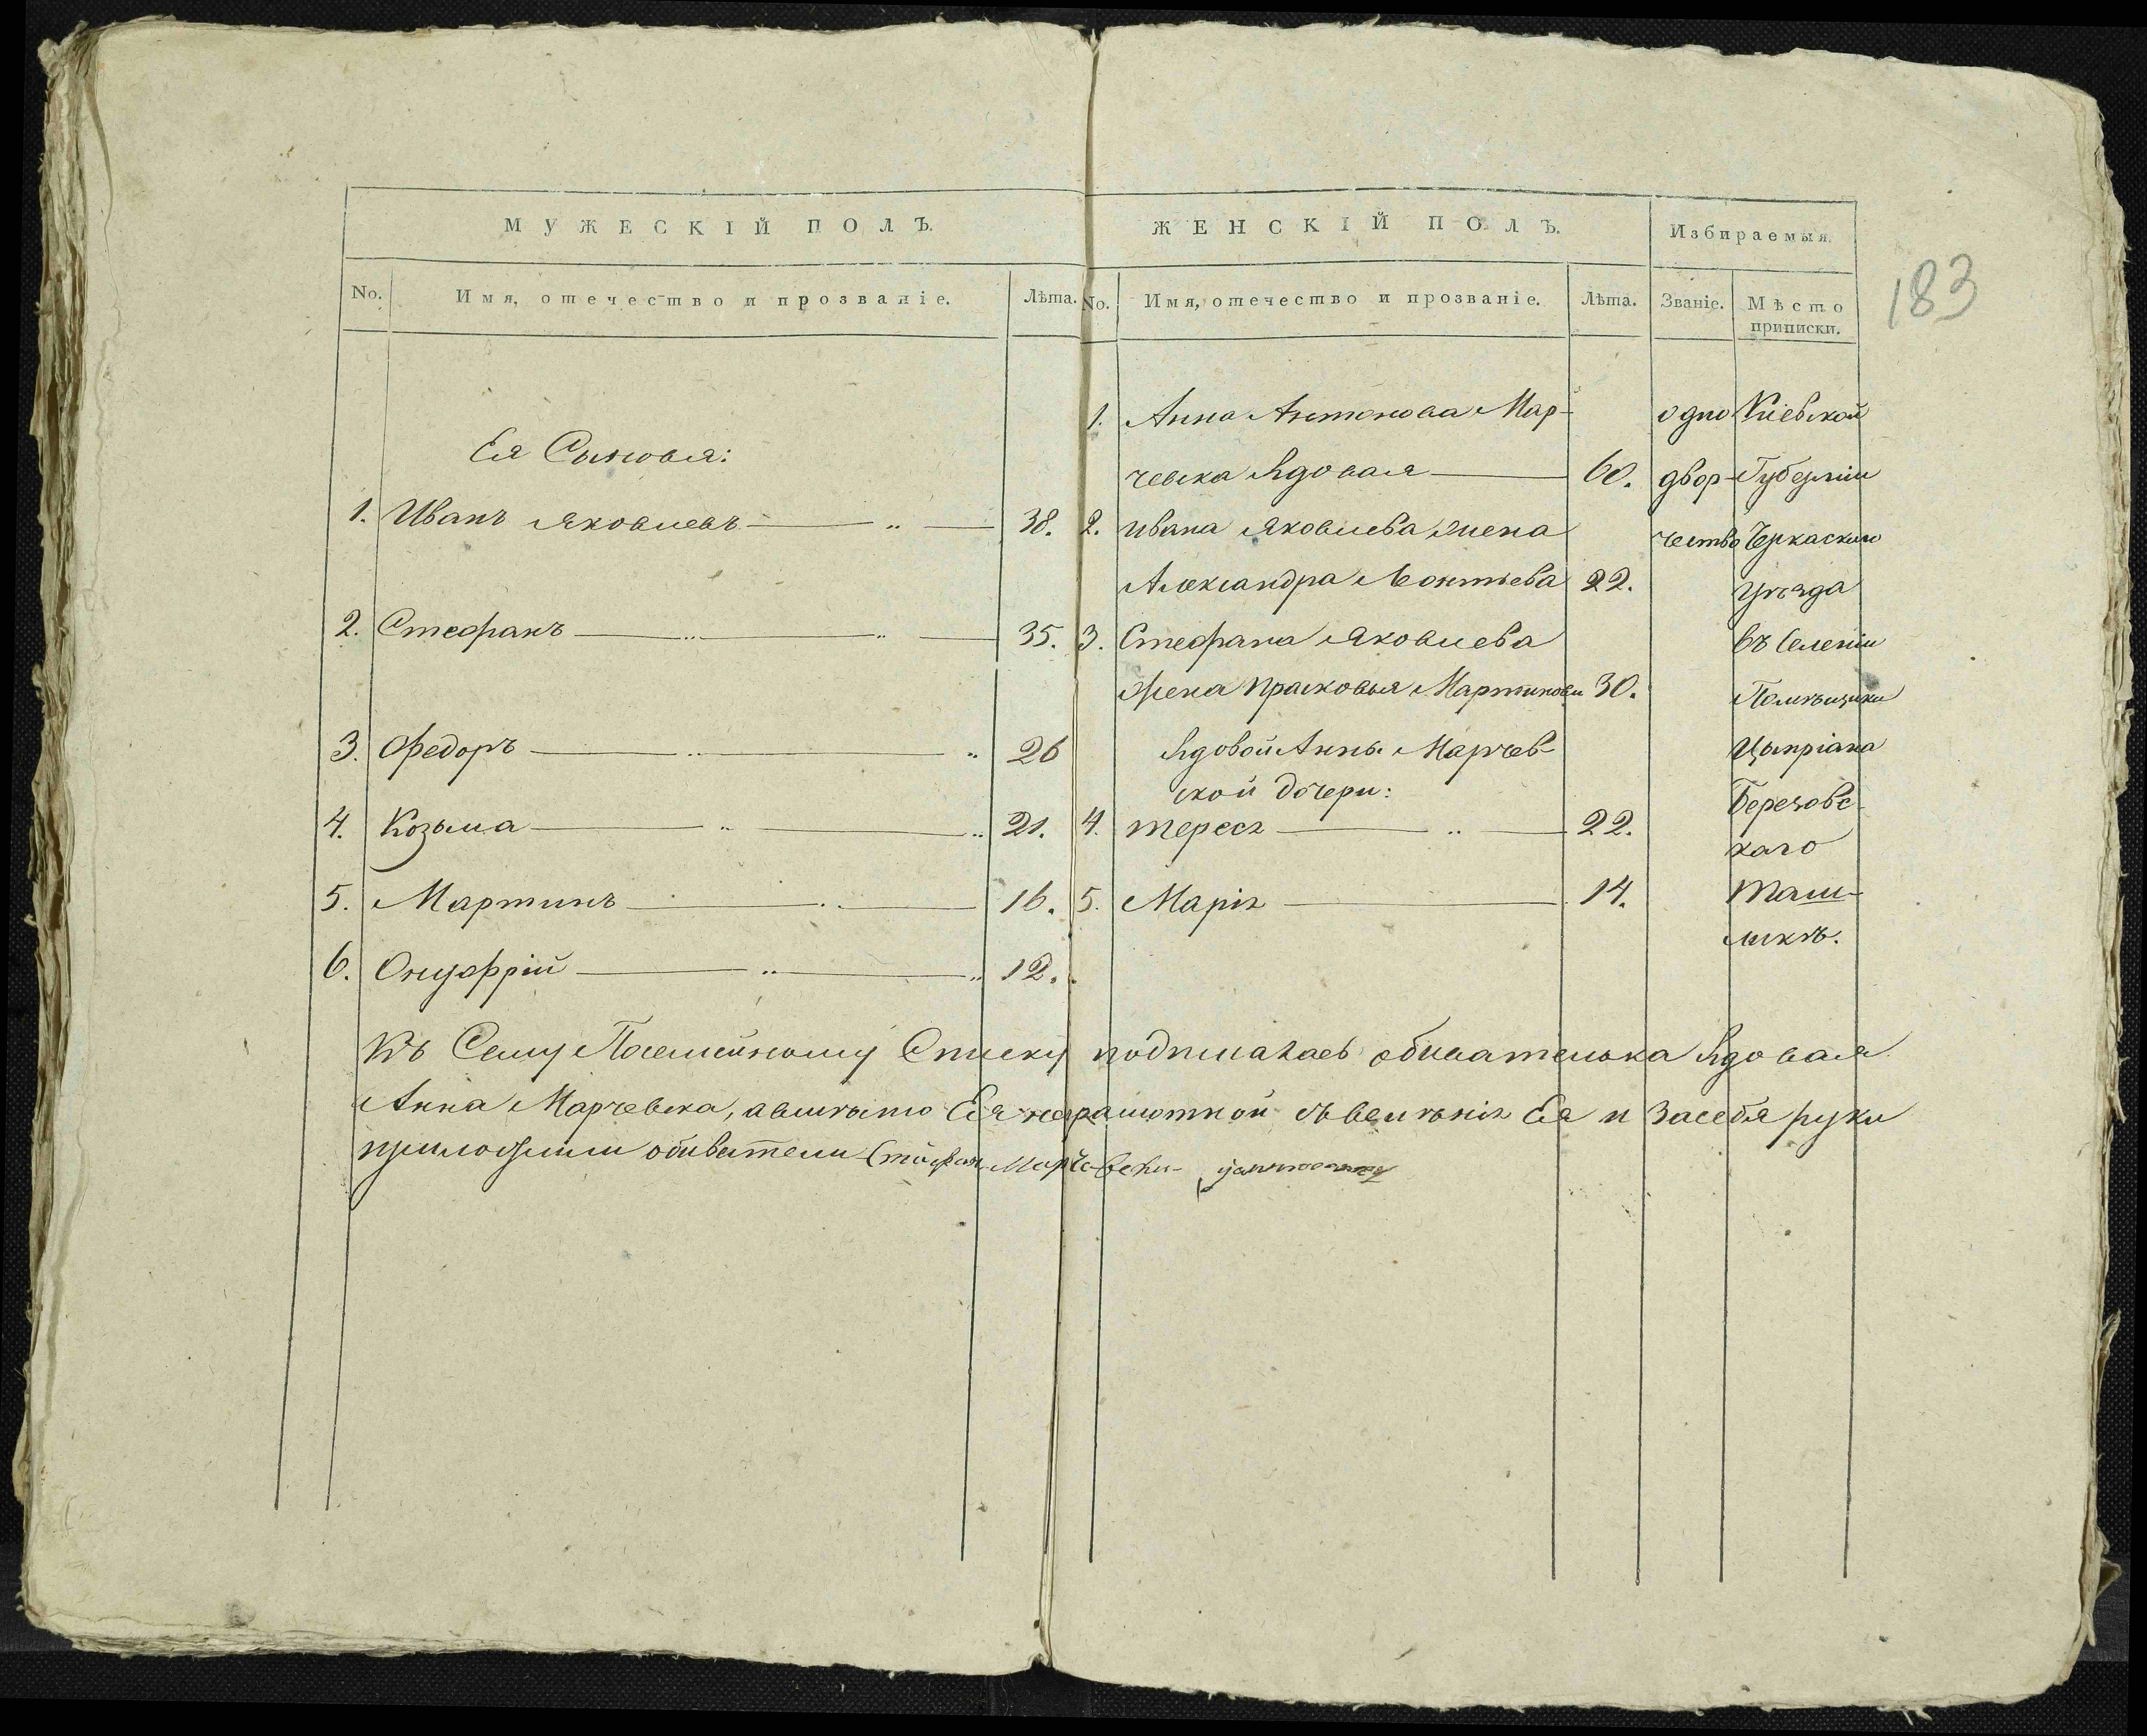 МУЖЕСКІЙ ПОЛЪ.
No. Имя, отечество и прозваніе. Лѣта.
Ея Сыновья:
1. Иванъ Яковлевъ — „ — 38.
2. Стефанъ — „ — „ — 35.
3. Федоръ — „ — „ 26
4. Козьма — „ — „ 21.
5. Мартинъ — „ — 16.
6. Онуфрій — „ — „ 12.
ЖЕНСКІЙ ПОЛЪ.
No. Имя, отечество и прозваніе. Лѣта.
1. Анна Антонова Мар-
чевска вдовая — 60.
2. Ивана Яковлева жена
Александра Леонтьева 22.
3. Стефана Яковлева
жена Прасковья Мартинова 30.
вдовой Анны Марчев-
ской дочери:
4. тереса — „ — 22.
5. Марія — 14.
Избираемыя.
Званіе. Мѣсто
приписки.
одно
двор-
чество
Кіевской
Губерніи
Черкаского
уѣзда
въ Селеніи
Помѣщика
Цыпріана
Березовс-
каго
Таш-
ликѣ.
183
Къ Сему Посемейному Списку подписалась обивателька вдовая
Анна Марчевска, а вмѣсто Ея неграмотной съ веленія Ея и За себя руки
приложили обиватели Стефан Марчевски